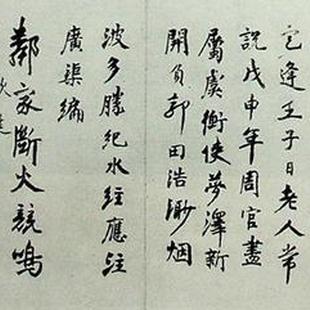 定逢壬子日老人常
說戊申年周官盡
屬虞衡使夢澤新
開負郭田浩渺烟
波多勝紀水經應注
廣渠編
鄰家斷火競鳴